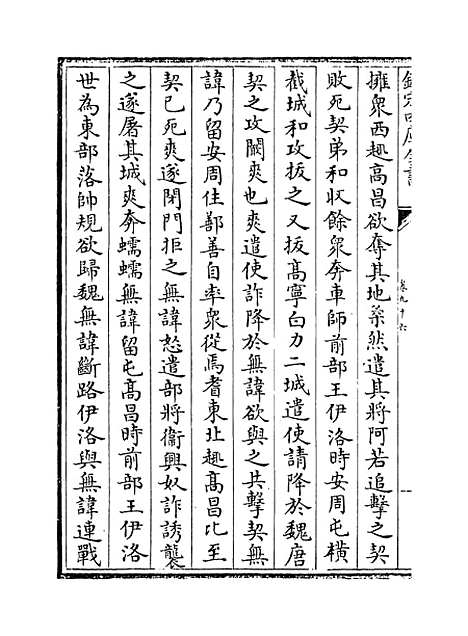 欽定四庫全書
卷九十六
擁衆西趣高昌欲奪其地柔然遣其將阿若追擊之契
敗死契弟和收餘衆奔車師前部王伊洛時安周屯橫
截城和攻拔之又拔高寧白力二城遣使請降於魏唐
契之攻闞爽也爽遣使詐降於無諱欲與之共擊契無
諱乃留安周住鄯善自率衆從焉耆東北趣髙昌比至
契已死爽遂閉門拒之無諱怒遣部將衞興奴詐誘襲
之遂屠其城爽奔蠕蠕無諱留屯髙昌時前部王伊洛
世為東部落帥規欲歸魏無諱斷路伊洛與無諱連戰